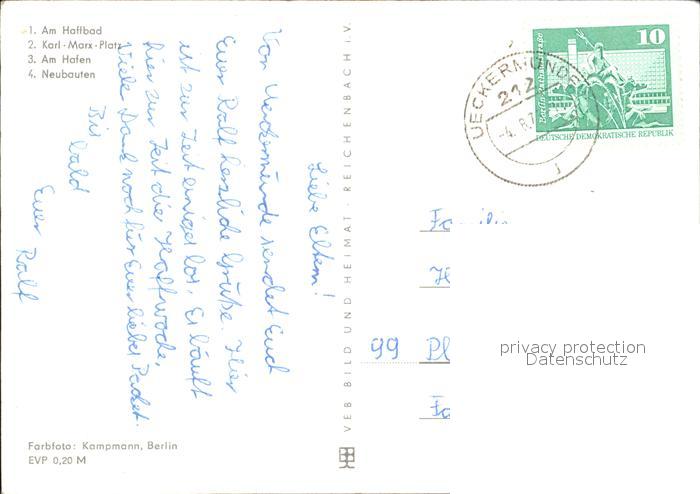 1. Am Haffbad
2. Karl-Marx-Platz
3. Am Hafen
4. Neubauten
Liebe Eltern!
Von Ueckermünde sendet Euch
Euer Ralf herzliche Grüße. Hier
ist zur Zeit einiges los. Es läuft
hier zur Zeit die Haffwoche.
Viele Dank noch für Euer liebes Packet.
Bis
bald
Euer Ralf
Farbfoto: Kampmann, Berlin
EVP 0,20 M
VEB BILD UND HEIMAT · REICHENBACH i.V.
10
Berlin, Rathausstraße
DEUTSCHE DEMOKRATISCHE REPUBLIK
UECKERMÜNDE
212
-4. 8.7
Fa
H
99 Pl
privacy protection
Datenschutz